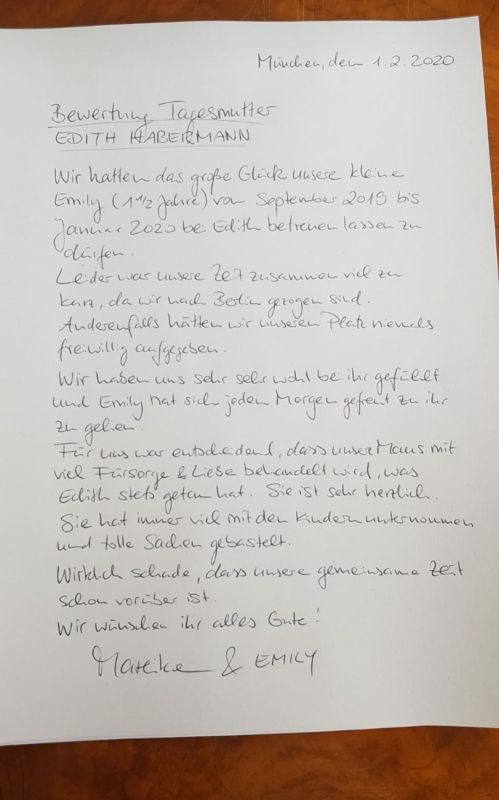 München, den 1.2.2020
Bewertung Tagesmutter
EDITH HABERMANN
Wir hatten das große Glück unsere kleine
Emily (1 1/2 Jahre) von September 2019 bis
Januar 2020 bei Edith betreuen lassen zu
dürfen.
Leider war unsere Zeit zusammen viel zu
kurz, da wir nach Berlin gezogen sind.
Anderenfalls hätten wir unseren Platz niemals
freiwillig aufgegeben.
Wir haben uns sehr sehr wohl bei ihr gefühlt
und Emily hat sich jeden Morgen gefreut zu ihr
zu gehen.
Für uns war entscheidend, dass unser Maus mit
viel Fürsorge & Liebe behandelt wird, was
Edith stets getan hat. Sie ist sehr herzlich.
Sie hat immer viel mit den Kindern unternommen
und tolle Sachen gebastelt.
Wirklich schade, dass unsere gemeinsame Zeit
schon vorüber ist.
Wir wünschen ihr alles Gute!
Mareike & EMILY